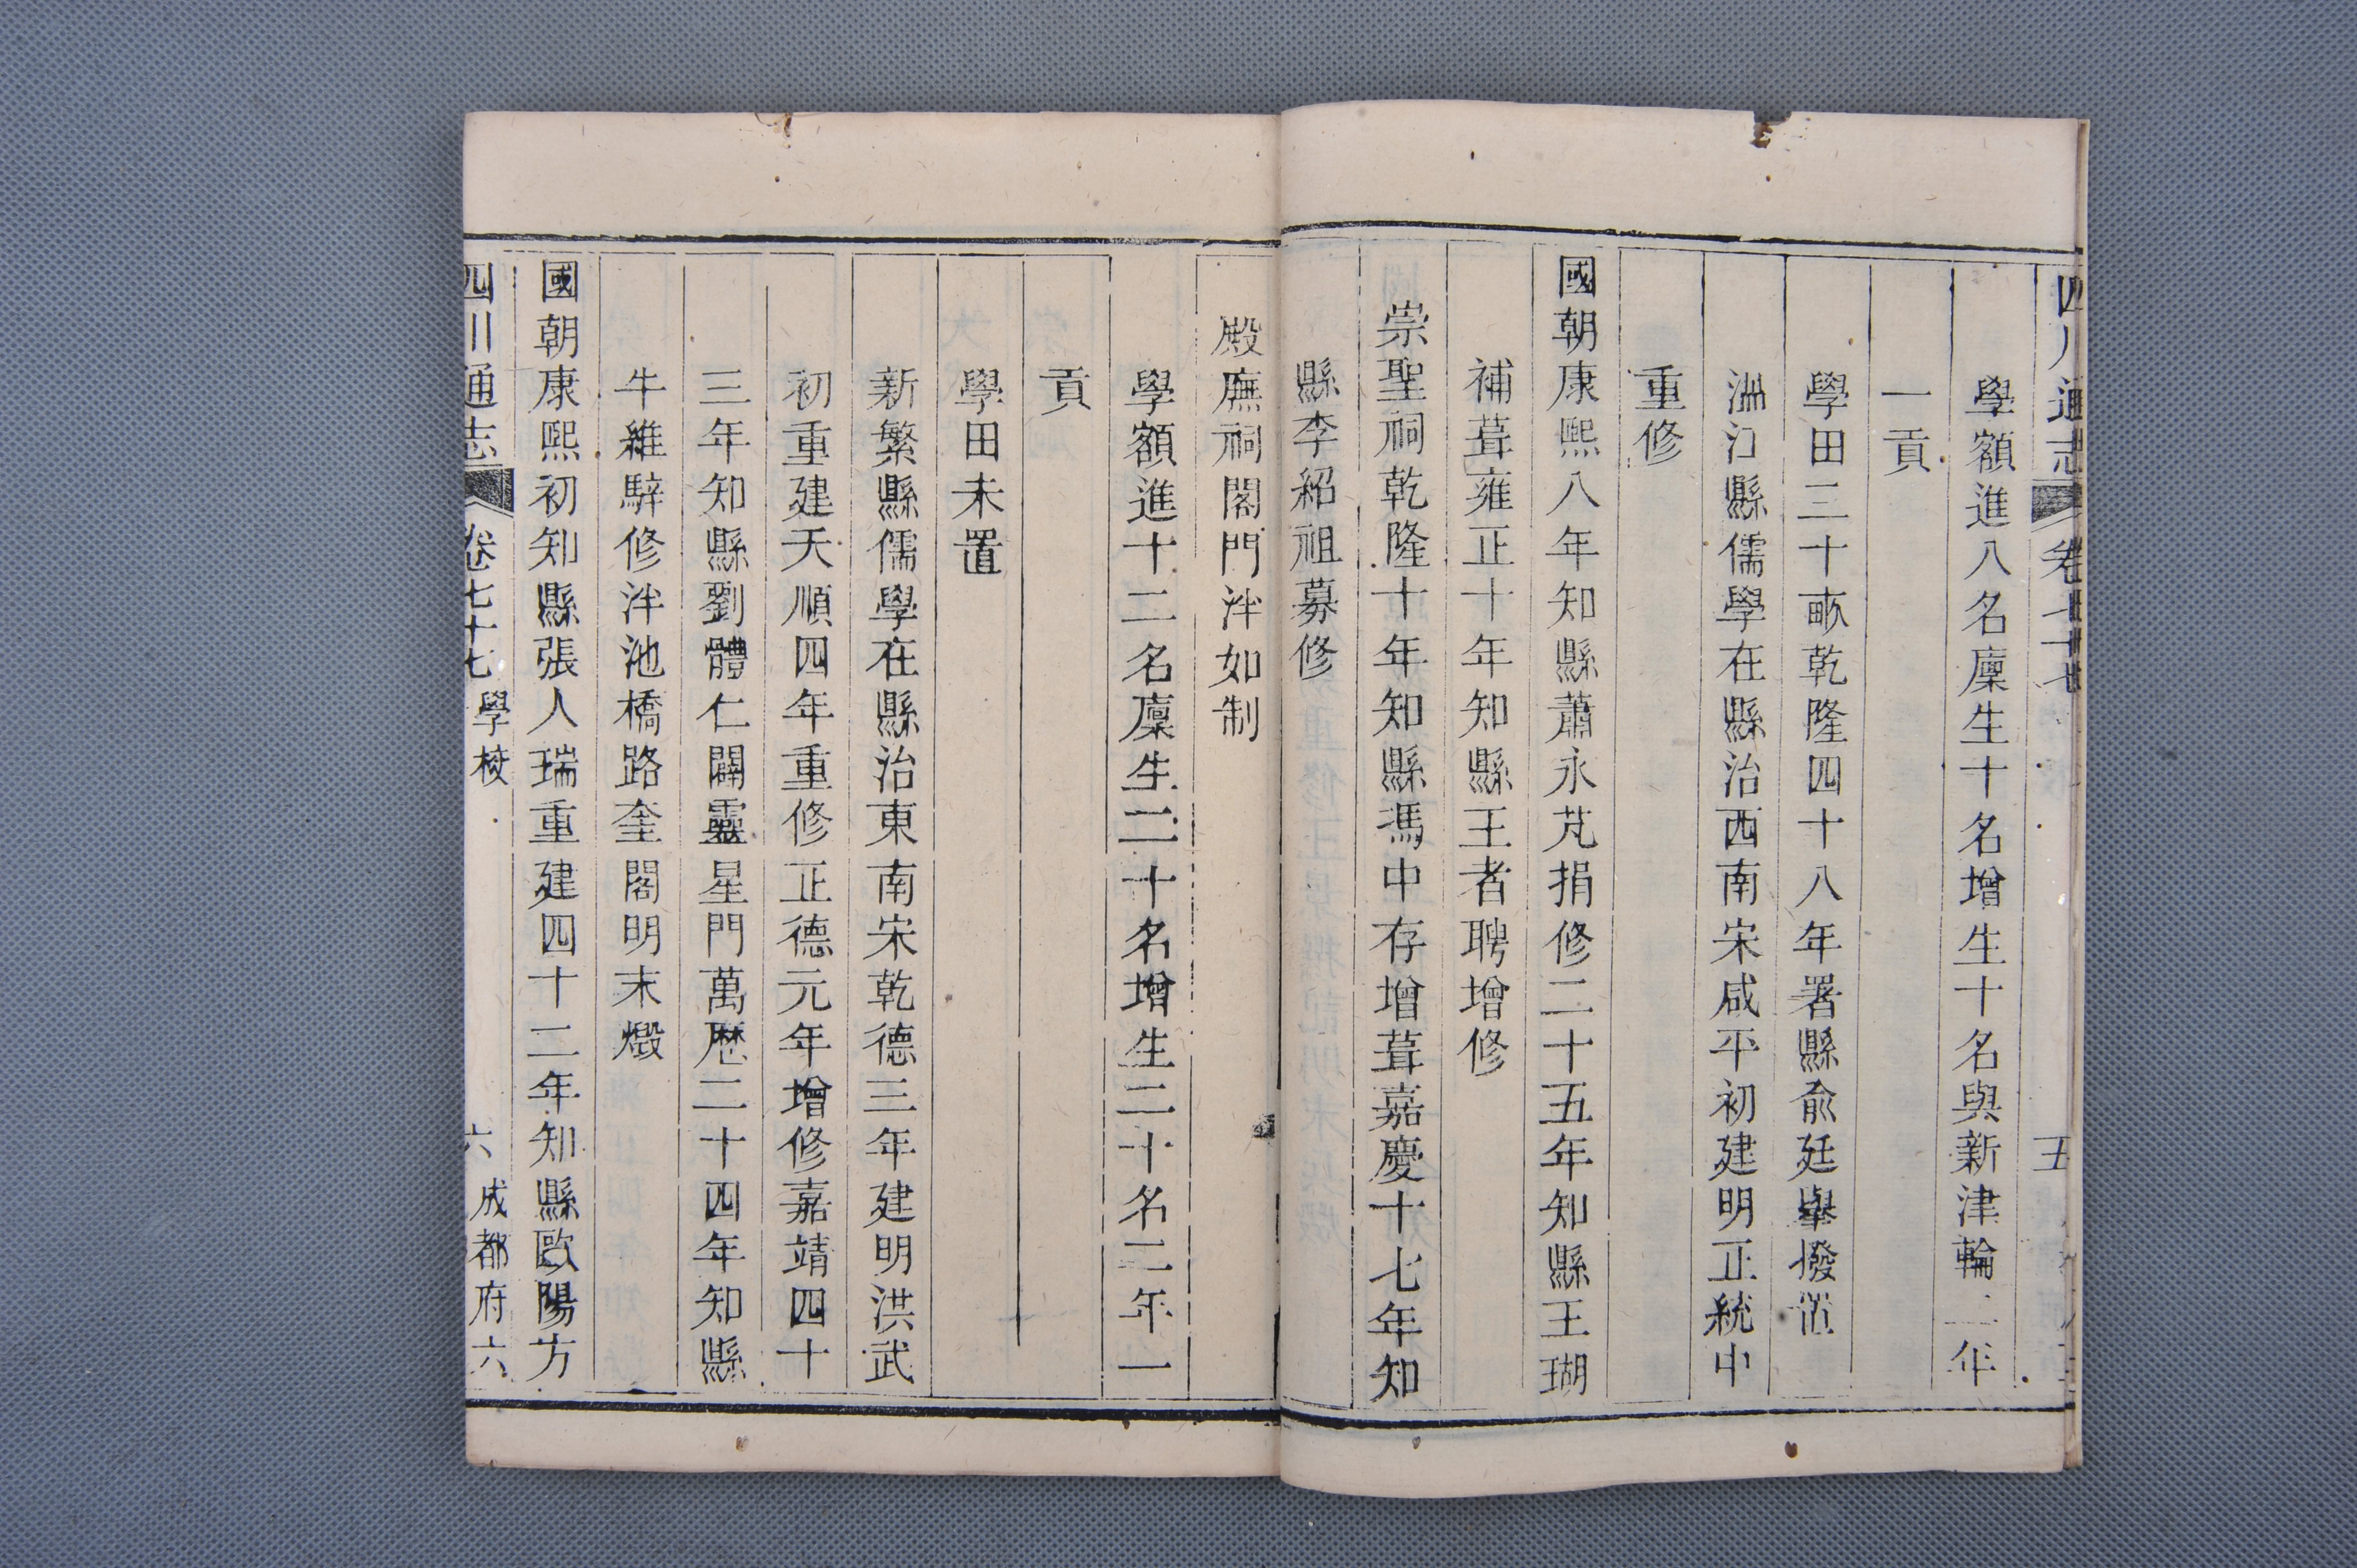 四川通志 卷七十七 五
學額進八名廩生十名增生十名與新津輪二年
一貢
學田三十畝乾隆四十八年署縣俞廷舉撥置
江縣儒學在縣治西南宋咸平初建明正統中
重修
國朝康熙八年知縣蕭永芃捐修二十五年知縣王瑚
補葺雍正十年知縣王者聘增修
崇聖祠乾隆十年知縣馮中存增葺嘉慶十七年知
縣李紹祖募修
殿廡祠閣門泮如制
學額進十二名廩生二十名增生二十名二年一
貢
學田未置
新繁縣儒學在縣治東南宋乾德三年建明洪武
初重建天順四年重修正德元年增修嘉靖四十
三年知縣劉體仁闢靈星門萬歷二十四年知縣
牛維騂修泮池橋路奎閣明末燬
國朝康熙初知縣張人瑞重建四十二年知縣歐陽方
四川通志 卷七十七 學校 六 成都府六